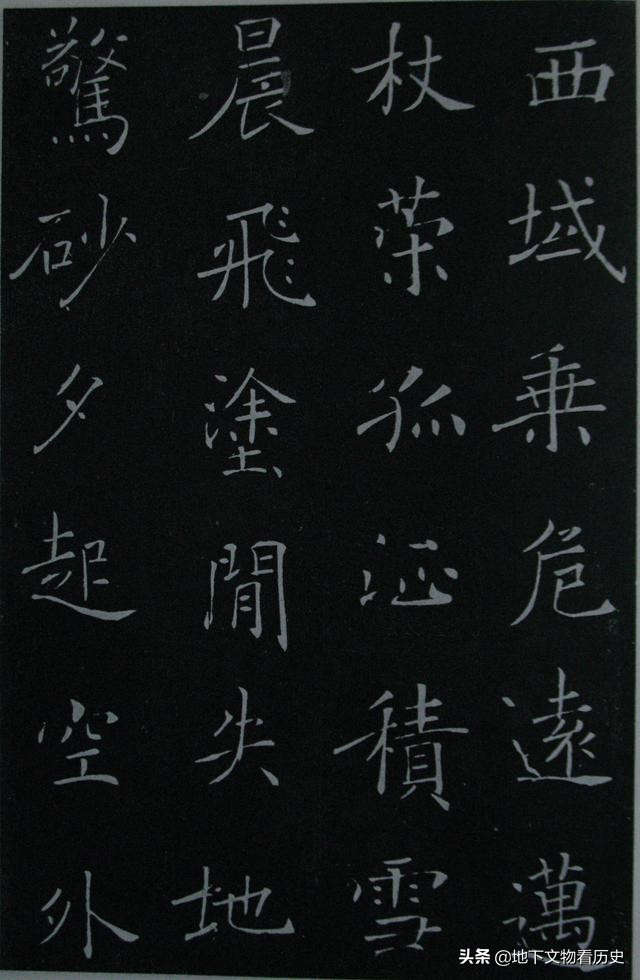 西域乘危遠邁
杖策孤征積雪
晨飛塗閒失地
驚砂夕起空外
头条 @地下文物看历史